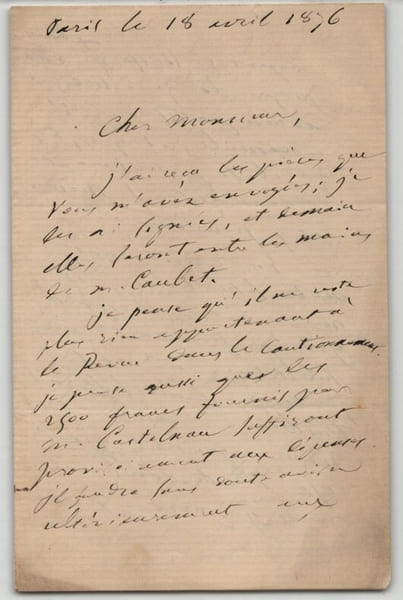 Paris le 18 avril 1876
Cher Monsieur,
j'ai reçu les pièces que
vous m'avez envoyées; je
les ai signées, et demain
elles seront entre les mains
de m. Caubet.
je pense qu'il ne reste
plus rien appartenant à
la Revue dans le cautionnement.
je pense aussi que les
2500 francs fournis par
m. Castelnau suffiront
provisoirement aux dépenses.
il faudra sans doute aviser
ultérieurement aux